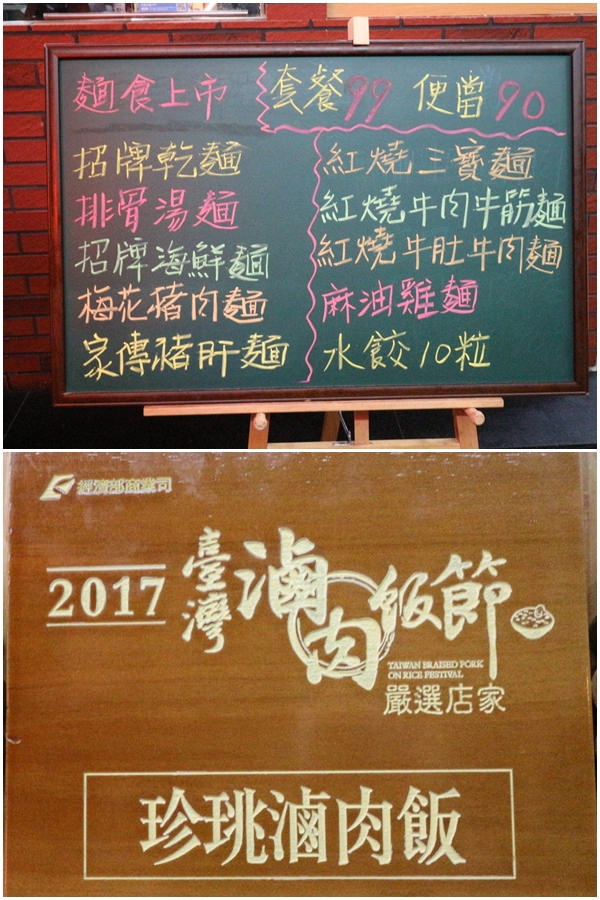 麵食上市
套餐99 便當90
招牌乾麵
排骨湯麵
招牌海鮮麵
梅花豬肉麵
家傳豬肝麵
紅燒三寶麵
紅燒牛肉牛筋麵
紅燒牛肚牛肉麵
麻油雞麵
水餃10粒
經濟部商業司
2017
臺灣滷肉飯節
TAIWAN BRAISED PORK
ON RICE FESTIVAL
嚴選店家
珍珗滷肉飯